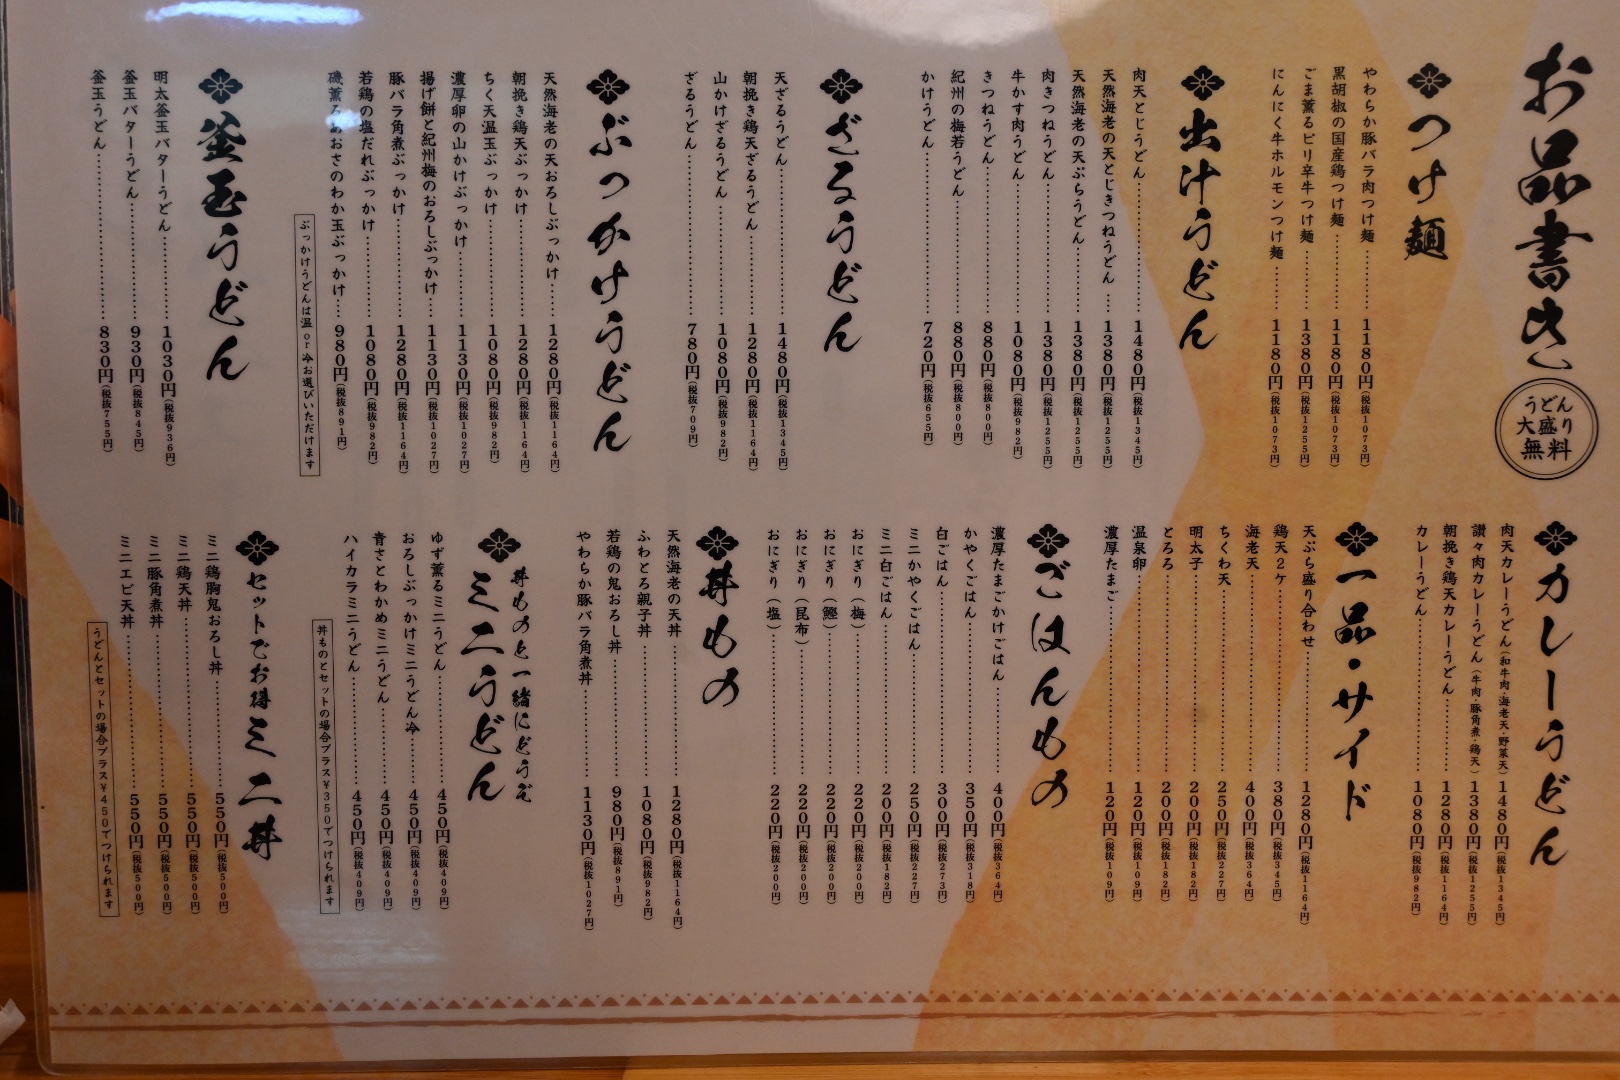 お品書き
うどん
大盛り
無料
つけ麺
やわらか豚バラ肉つけ麺 1180円(税抜1073円)
黒胡椒の国産鶏つけ麺 1180円(税抜1073円)
ごま薫るピリ辛牛つけ麺 1380円(税抜1255円)
にんにく牛ホルモンつけ麺 1180円(税抜1073円)
出汁うどん
肉天とじうどん 1480円(税抜1345円)
天然海老の天とじきつねうどん 1380円(税抜1255円)
天然海老の天ぷらうどん 1380円(税抜1255円)
肉きつねうどん 1380円(税抜1255円)
牛かす肉うどん 1080円(税抜982円)
きつねうどん 880円(税抜800円)
紀州の梅若うどん 880円(税抜800円)
かけうどん 720円(税抜655円)
ざるうどん
天ざるうどん 1480円(税抜1345円)
朝挽き鶏天ざるうどん 1280円(税抜1164円)
山かけざるうどん 1080円(税抜982円)
ざるうどん 780円(税抜709円)
ぶっかけうどん
天然海老の天おろしぶっかけ 1280円(税抜1164円)
朝挽き鶏天ぶっかけ 1280円(税抜1164円)
ちく天温玉ぶっかけ 1080円(税抜982円)
濃厚卵の山かけぶっかけ 1130円(税抜1027円)
揚げ餅と紀州梅のおろしぶっかけ 1130円(税抜1027円)
豚バラ角煮ぶっかけ 1280円(税抜1164円)
若鶏の塩だれぶっかけ 1080円(税抜982円)
磯薫るあおさのわか玉ぶっかけ 980円(税抜891円)
ぶっかけうどんは温or冷お選びいただけます
釜玉うどん
明太釜玉バターうどん 1030円(税抜936円)
釜玉バターうどん 930円(税抜845円)
釜玉うどん 830円(税抜755円)
カレーうどん
肉天カレーうどん(和牛肉・海老天・野菜天) 1480円(税抜1345円)
讃々肉カレーうどん(牛肉・豚角煮・鶏天) 1380円(税抜1255円)
朝挽き鶏天カレーうどん 1280円(税抜1164円)
カレーうどん 1080円(税抜982円)
一品・サイド
天ぷら盛り合わせ 1280円(税抜1164円)
鶏天2ケ 380円(税抜345円)
海老天 400円(税抜364円)
ちくわ天 250円(税抜227円)
明太子 200円(税抜182円)
とろろ 200円(税抜182円)
温泉卵 120円(税抜109円)
濃厚たまご 120円(税抜109円)
ごはんもの
濃厚たまごかけごはん 400円(税抜364円)
かやくごはん 350円(税抜318円)
白ごはん 300円(税抜273円)
ミニかやくごはん 250円(税抜227円)
ミニ白ごはん 200円(税抜182円)
おにぎり(梅) 220円(税抜200円)
おにぎり(鰹) 220円(税抜200円)
おにぎり(昆布) 220円(税抜200円)
おにぎり(塩) 220円(税抜200円)
丼もの
天然海老の天丼 1280円(税抜1164円)
ふわとろ親子丼 1080円(税抜982円)
若鶏の鬼おろし丼 980円(税抜891円)
やわらか豚バラ角煮丼 1130円(税抜1027円)
丼ものと一緒にどうぞ
ミニうどん
ゆず薫るミニうどん 450円(税抜409円)
おろしぶっかけミニうどん冷 450円(税抜409円)
青さとわかめミニうどん 450円(税抜409円)
ハイカラミニうどん 450円(税抜409円)
丼ものとセットの場合プラス¥350でつけられます
セットでお得ミニ丼
ミニ鶏胸鬼おろし丼 550円(税抜500円)
ミニ鶏天丼 550円(税抜500円)
ミニ豚角煮丼 550円(税抜500円)
ミニエビ天丼 550円(税抜500円)
うどんとセットの場合プラス¥450でつけられます